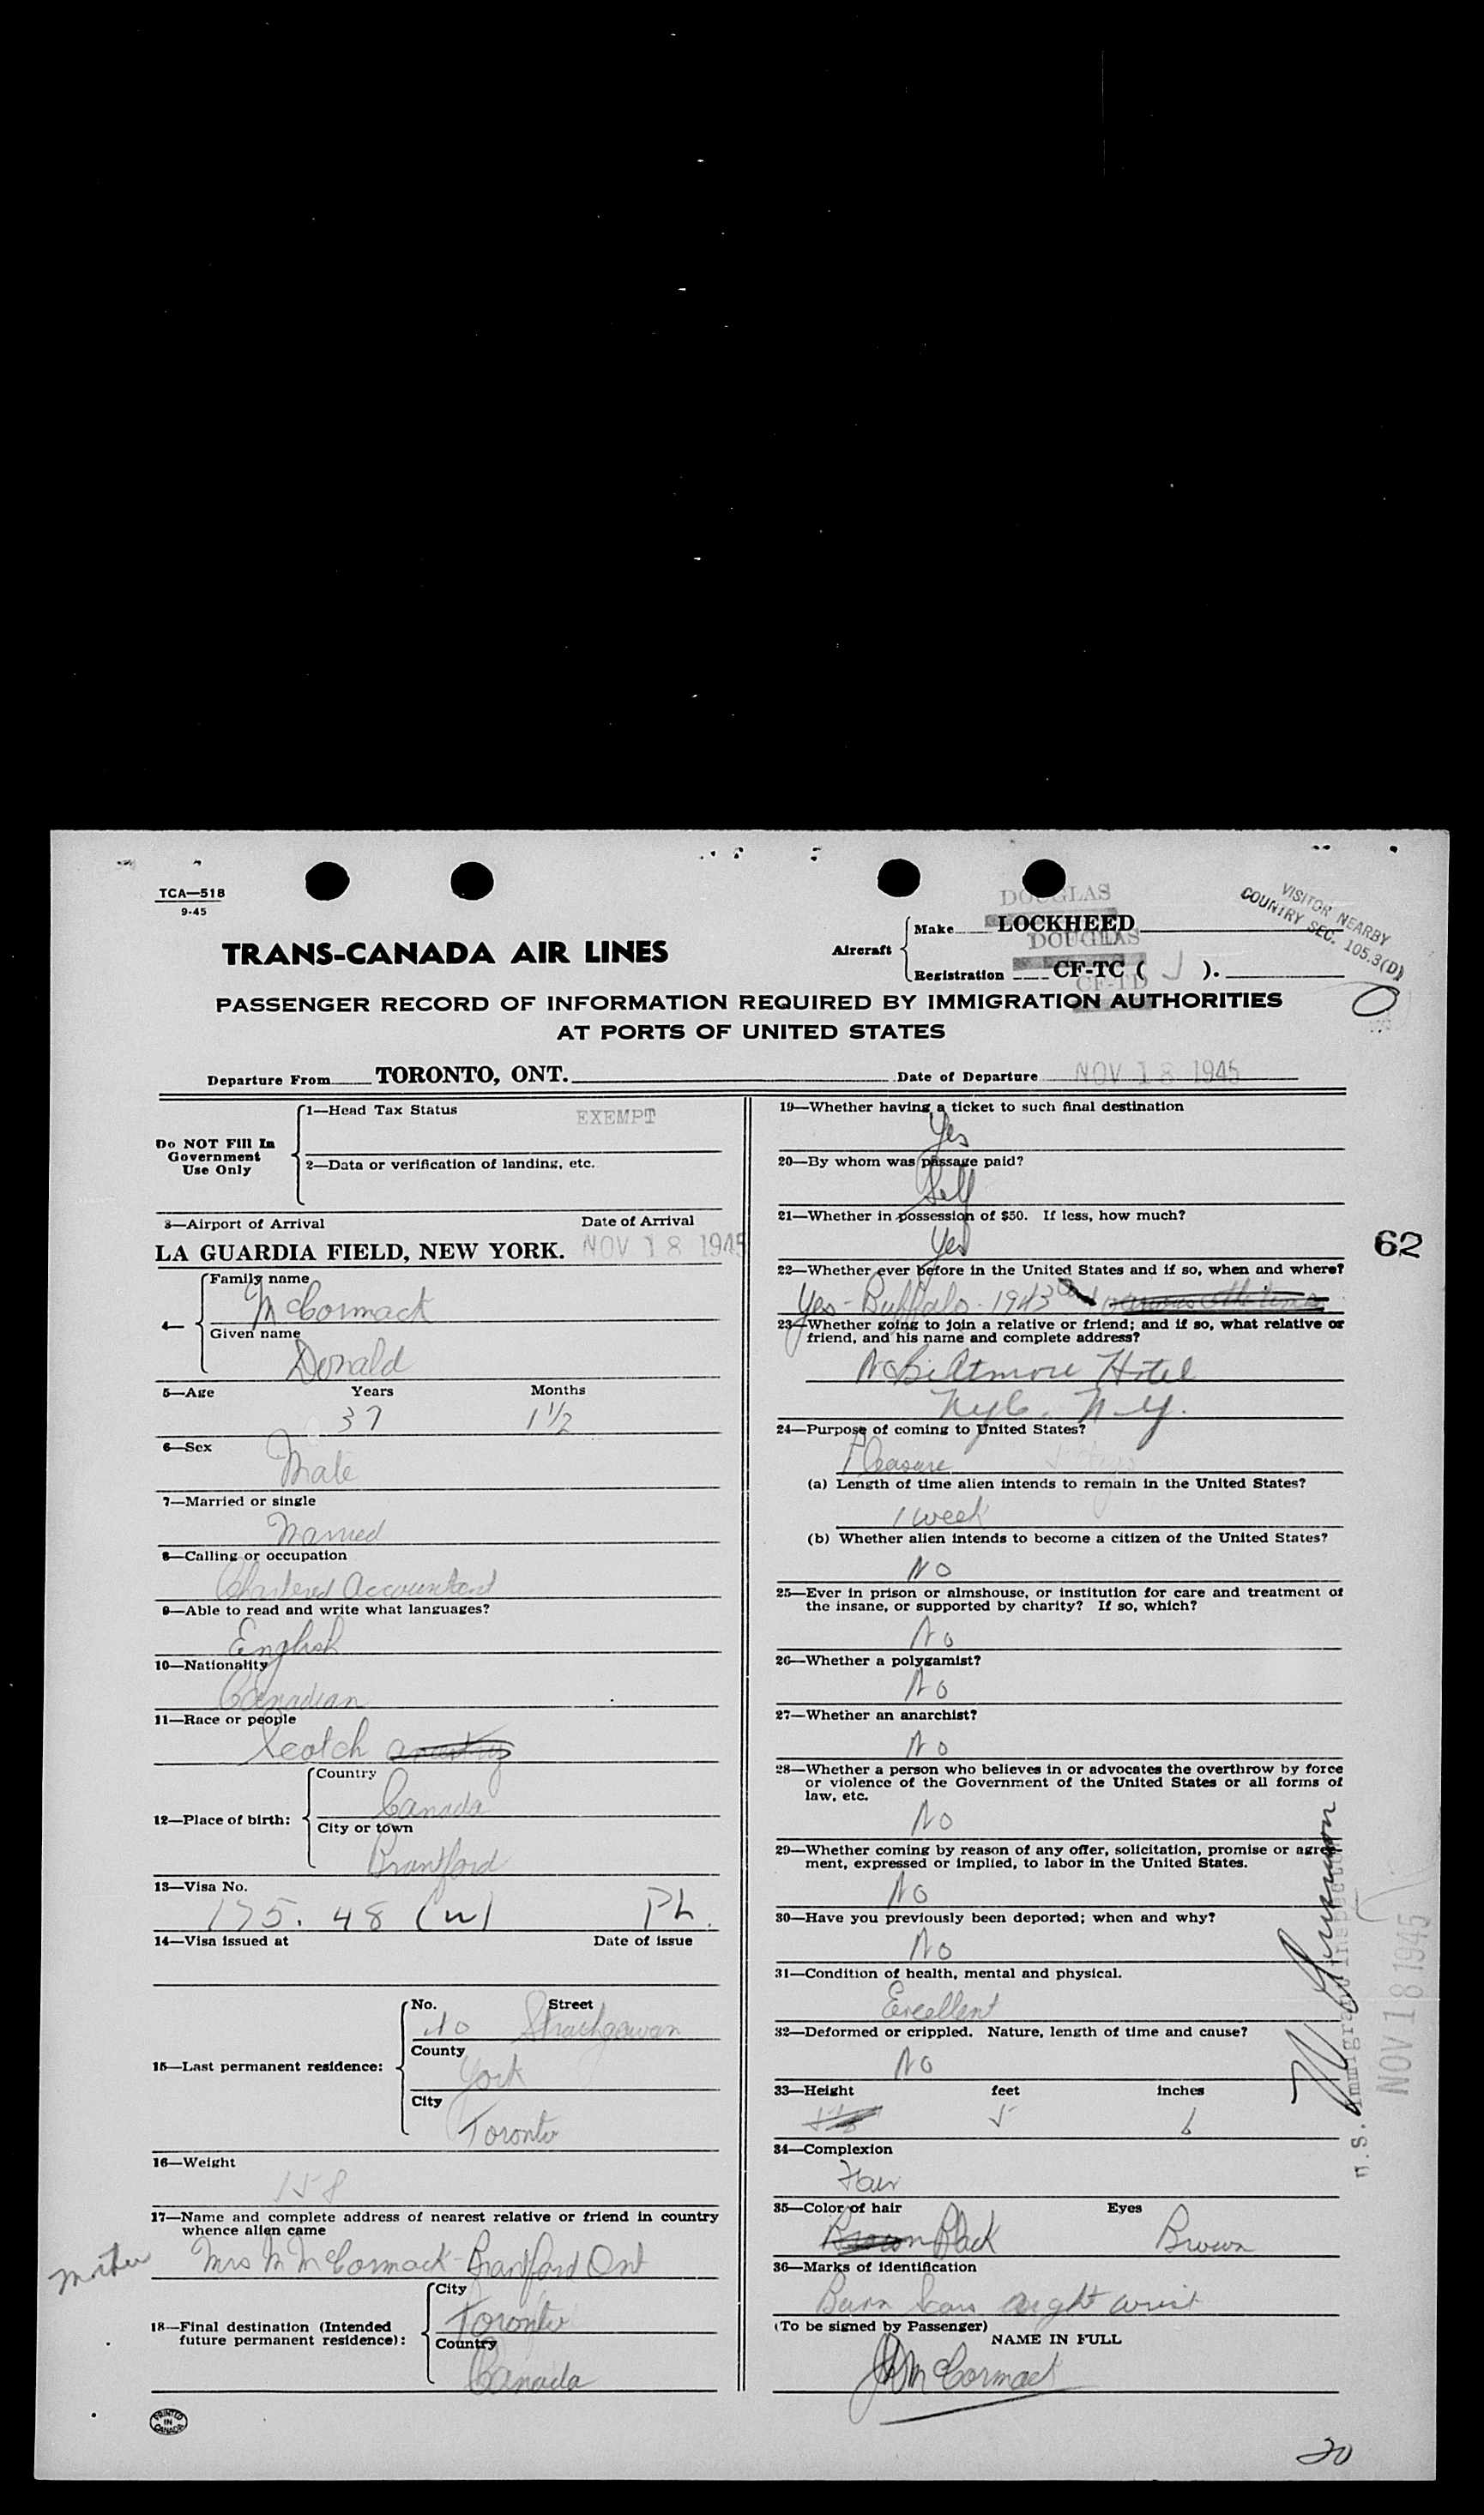 TCA—518
9-45
TRANS-CANADA AIR LINES
DOUGLAS
Aircraft
Make LOCKHEED
DOUGLAS
Registration CF-TC ( J ).
CF-TD
VISITOR NEARBY
COUNTRY SEC. 105.3(D)
PASSENGER RECORD OF INFORMATION REQUIRED BY IMMIGRATION AUTHORITIES
AT PORTS OF UNITED STATES
Departure From TORONTO, ONT. Date of Departure NOV 18 1945
Do NOT Fill In
Government
Use Only
1—Head Tax Status EXEMPT
2—Data or verification of landing, etc.
3—Airport of Arrival Date of Arrival
LA GUARDIA FIELD, NEW YORK. NOV 18 1945
4—
Family name
McCormack
Given name
Donald
5—Age Years Months
37 1 1/2
6—Sex
Male
7—Married or single
Married
8—Calling or occupation
Chartered Accountant
9—Able to read and write what languages?
English
10—Nationality
Canadian
11—Race or people
Scotch
12—Place of birth:
Country
Canada
City or town
Brantford
13—Visa No.
175. 48 (w) Ph.
14—Visa issued at Date of issue
15—Last permanent residence:
No. Street
County
York
City
Toronto
16—Weight
158
17—Name and complete address of nearest relative or friend in country
whence alien came
Mother Mrs M McCormack - Brantford Ont
18—Final destination (Intended
future permanent residence):
City
Toronto
Country
Canada
PRINTED
IN
CANADA
19—Whether having a ticket to such final destination
Yes
20—By whom was passage paid?
Self
21—Whether in possession of $50. If less, how much?
Yes
62
22—Whether ever before in the United States and if so, when and where?
Yes - Buffalo - 1943
23—Whether going to join a relative or friend; and if so, what relative or
friend, and his name and complete address?
No Biltmore Hotel
NYC. N.Y.
24—Purpose of coming to United States?
Pleasure
(a) Length of time alien intends to remain in the United States?
1 week
(b) Whether alien intends to become a citizen of the United States?
No
25—Ever in prison or almshouse, or institution for care and treatment of
the insane, or supported by charity? If so, which?
No
26—Whether a polygamist?
No
27—Whether an anarchist?
No
28—Whether a person who believes in or advocates the overthrow by force
or violence of the Government of the United States or all forms of
law, etc.
No
29—Whether coming by reason of any offer, solicitation, promise or agree-
ment, expressed or implied, to labor in the United States.
No
30—Have you previously been deported; when and why?
No
31—Condition of health, mental and physical.
Excellent
32—Deformed or crippled. Nature, length of time and cause?
No
33—Height feet inches
5 6
34—Complexion
Fair
35—Color of hair Eyes
Brown Black Brown
36—Marks of identification
Burn Scar right wrist
(To be signed by Passenger)
NAME IN FULL
McCormack
U.S. Immigration Inspector
NOV 18 1945
20